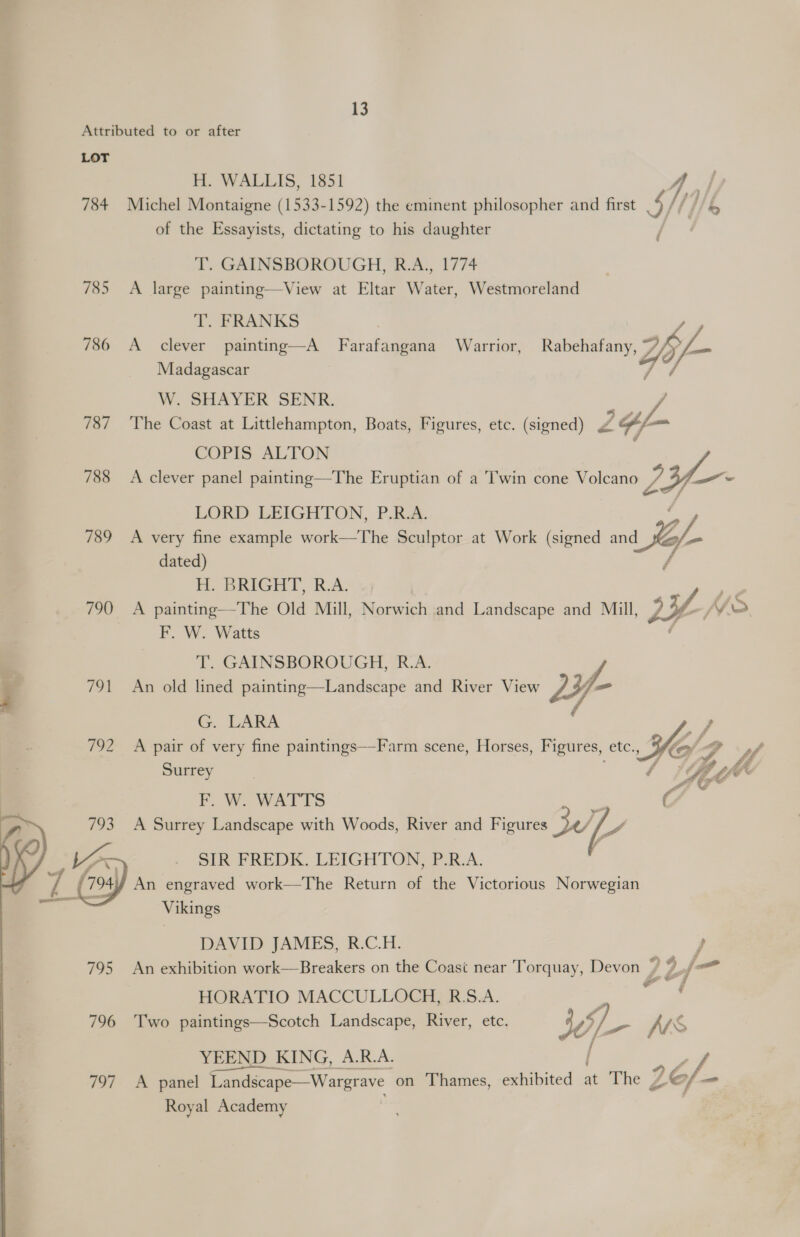 13
Attributed to or after
LOT
H. WALLIS, 1851
784 Michel Montaigne (1533-1592) the eminent philosopher and first
of the Essayists, dictating to his daughter
T. GAINSBOROUGH, R.A., 1774
785 A large painting—View at Eltar Water, Westmoreland
T. FRANKS
786 A clever painting—A Farafangana Warrior, Rabehafany,
Madagascar
W. SHAYER SENR.
787 The Coast at Littlehampton, Boats, Figures, etc. (signed)
COPIS ALTON
788 A clever panel painting—The Eruptian of a Twin cone Volcano
LORD LEIGHTON, P.R.A.
789 A very fine example work—The Sculptor at Work (signed and
dated)
H. BRIGHT, R.A.
790 A painting—The Old Mill, Norwich and Landscape and Mill, NS
F. W. Watts
T. GAINSBOROUGH, R.A.
791 An old lined painting—Landscape and River View
G. LARA
792 A pair of very fine paintings—Farm scene, Horses, Figures, etc.,
Surrey
F. W. WATTS
793 A Surrey Landscape with Woods, River and Figures
SIR FREDK. LEIGHTON, P.R.A.
794 An engraved work—The Return of the Victorious Norwegian
Vikings
DAVID JAMES, R.C.H.
795 An exhibition work—Breakers on the Coast near Torquay, Devon
HORATIO MACCULLOCH, R.S.A.
796 Two paintings—Scotch Landscape, River, etc. NS
YEEND KING, A.R.A.
797 A panel Landscape—Wargrave on Thames, exhibited at The
Royal Academy